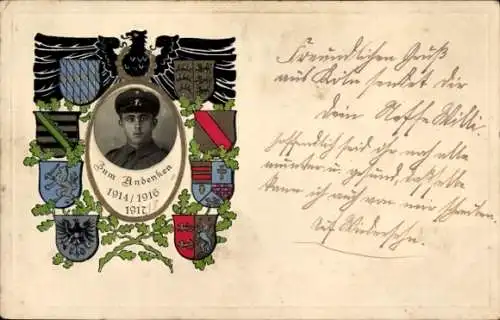 Zum Andenken
1914/1916
1917/
Freundlichen Gruß
aus Köln sendet dir
dein Neffe Willi.
hoffentlich seid ihr noch alle
munter u. gesund, dasselbe
kann ich auch von mir schreiben.
Auf Wiedersehn.